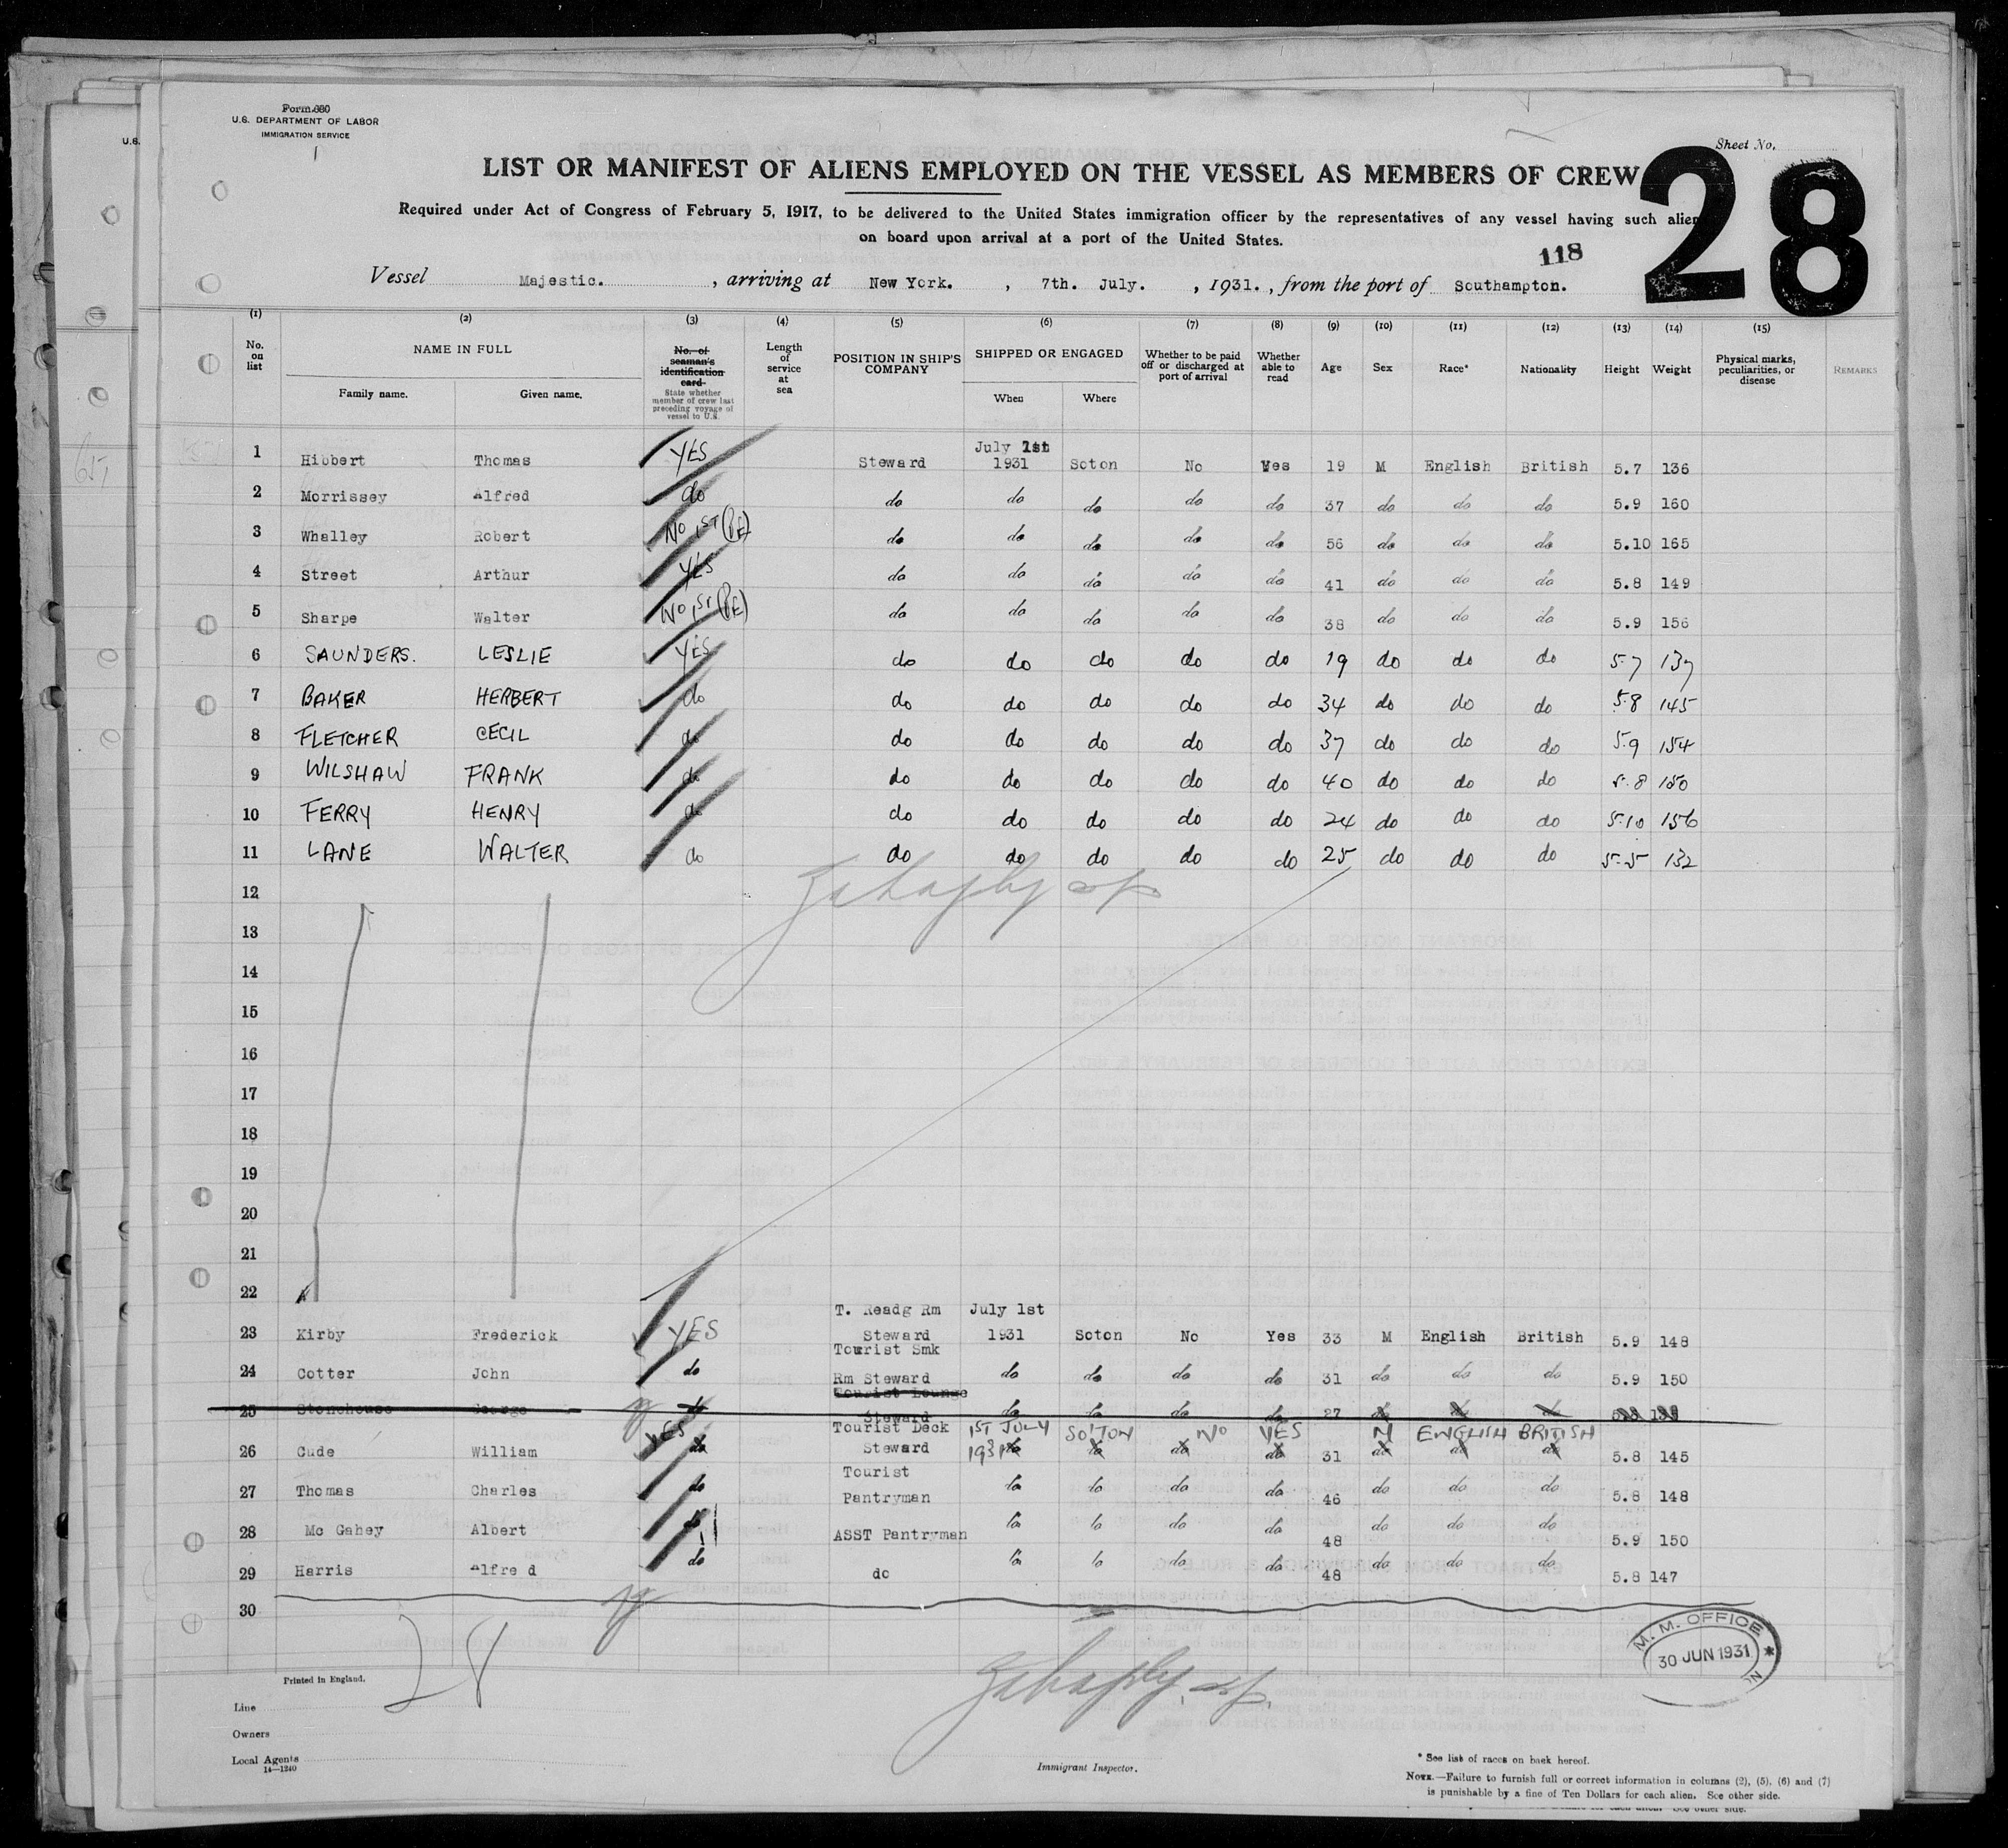 Form 680
U.S. DEPARTMENT OF LABOR
IMMIGRATION SERVICE
Sheet No.
28
LIST OR MANIFEST OF ALIENS EMPLOYED ON THE VESSEL AS MEMBERS OF CREW
Required under Act of Congress of February 5, 1917, to be delivered to the United States immigration officer by the representatives of any vessel having such alien
on board upon arrival at a port of the United States.
118
Vessel Majestic. , arriving at New York. , 7th. July. , 1931. , from the port of Southampton.
(1) (2) (3) (4) (5) (6) (7) (8) (9) (10) (11) (12) (13) (14) (15)
No. on list NAME IN FULL Family name. Given name. No. of seaman's identification card State whether member of crew last preceding voyage of vessel to U.S. Length of service at sea POSITION IN SHIP'S COMPANY SHIPPED OR ENGAGED When Where Whether to be paid off or discharged at port of arrival Whether able to read Age Sex Race* Nationality Height Weight Physical marks, peculiarities, or disease REMARKS
1 Hibbert Thomas YES Steward July 1st 1931 Soton No Yes 19 M English British 5.7 136
2 Morrissey Alfred do do do do do do 37 do do do 5.9 160
3 Whalley Robert No 1ST (PE) do do do do do 56 do do do 5.10 165
4 Street Arthur YES do do do do do 41 do do do 5.8 149
5 Sharpe Walter No 1ST (PE) do do do do do 38 do do do 5.9 156
6 SAUNDERS. LESLIE YES do do do do do 19 do do do 5.7 137
7 BAKER HERBERT do do do do do do 34 do do do 5.8 145
8 FLETCHER CECIL do do do do do do 37 do do do 5.9 154
9 WILSHAW FRANK do do do do do do 40 do do do 5.8 150
10 FERRY HENRY do do do do do do 24 do do do 5.10 156
11 LANE WALTER do do do do do do 25 do do do 5.5 132
12
13
14
15
16
17
18
19
20
21
22
23 Kirby Frederick YES T. Readg Rm Steward July 1st 1931 Soton No Yes 33 M English British 5.9 148
24 Cotter John do Tourist Smk Rm Steward do do do do 31 do do do 5.9 150
25 Stonehouse George do Tourist Lounge Steward do do do do 27 do do do
26 Cude William YES do Tourist Deck Steward 1ST JULY 1931 SO'TON NO YES 31 M ENGLISH BRITISH 5.8 145
27 Thomas Charles do Tourist Pantryman do do do do 46 do do do 5.8 148
28 Mc Gahey Albert do ASST Pantryman do do do do 48 do do do 5.9 150
29 Harris Alfred do do do do do do 48 do do do 5.8 147
30
28
M. M. OFFICE
30 JUN 1931
Printed in England.
Line
Owners
Local Agents
14—1240
Immigrant Inspector.
* See list of races on back hereof.
NOTE.—Failure to furnish full or correct information in columns (2), (5), (6) and (7)
is punishable by a fine of Ten Dollars for each alien. See other side.